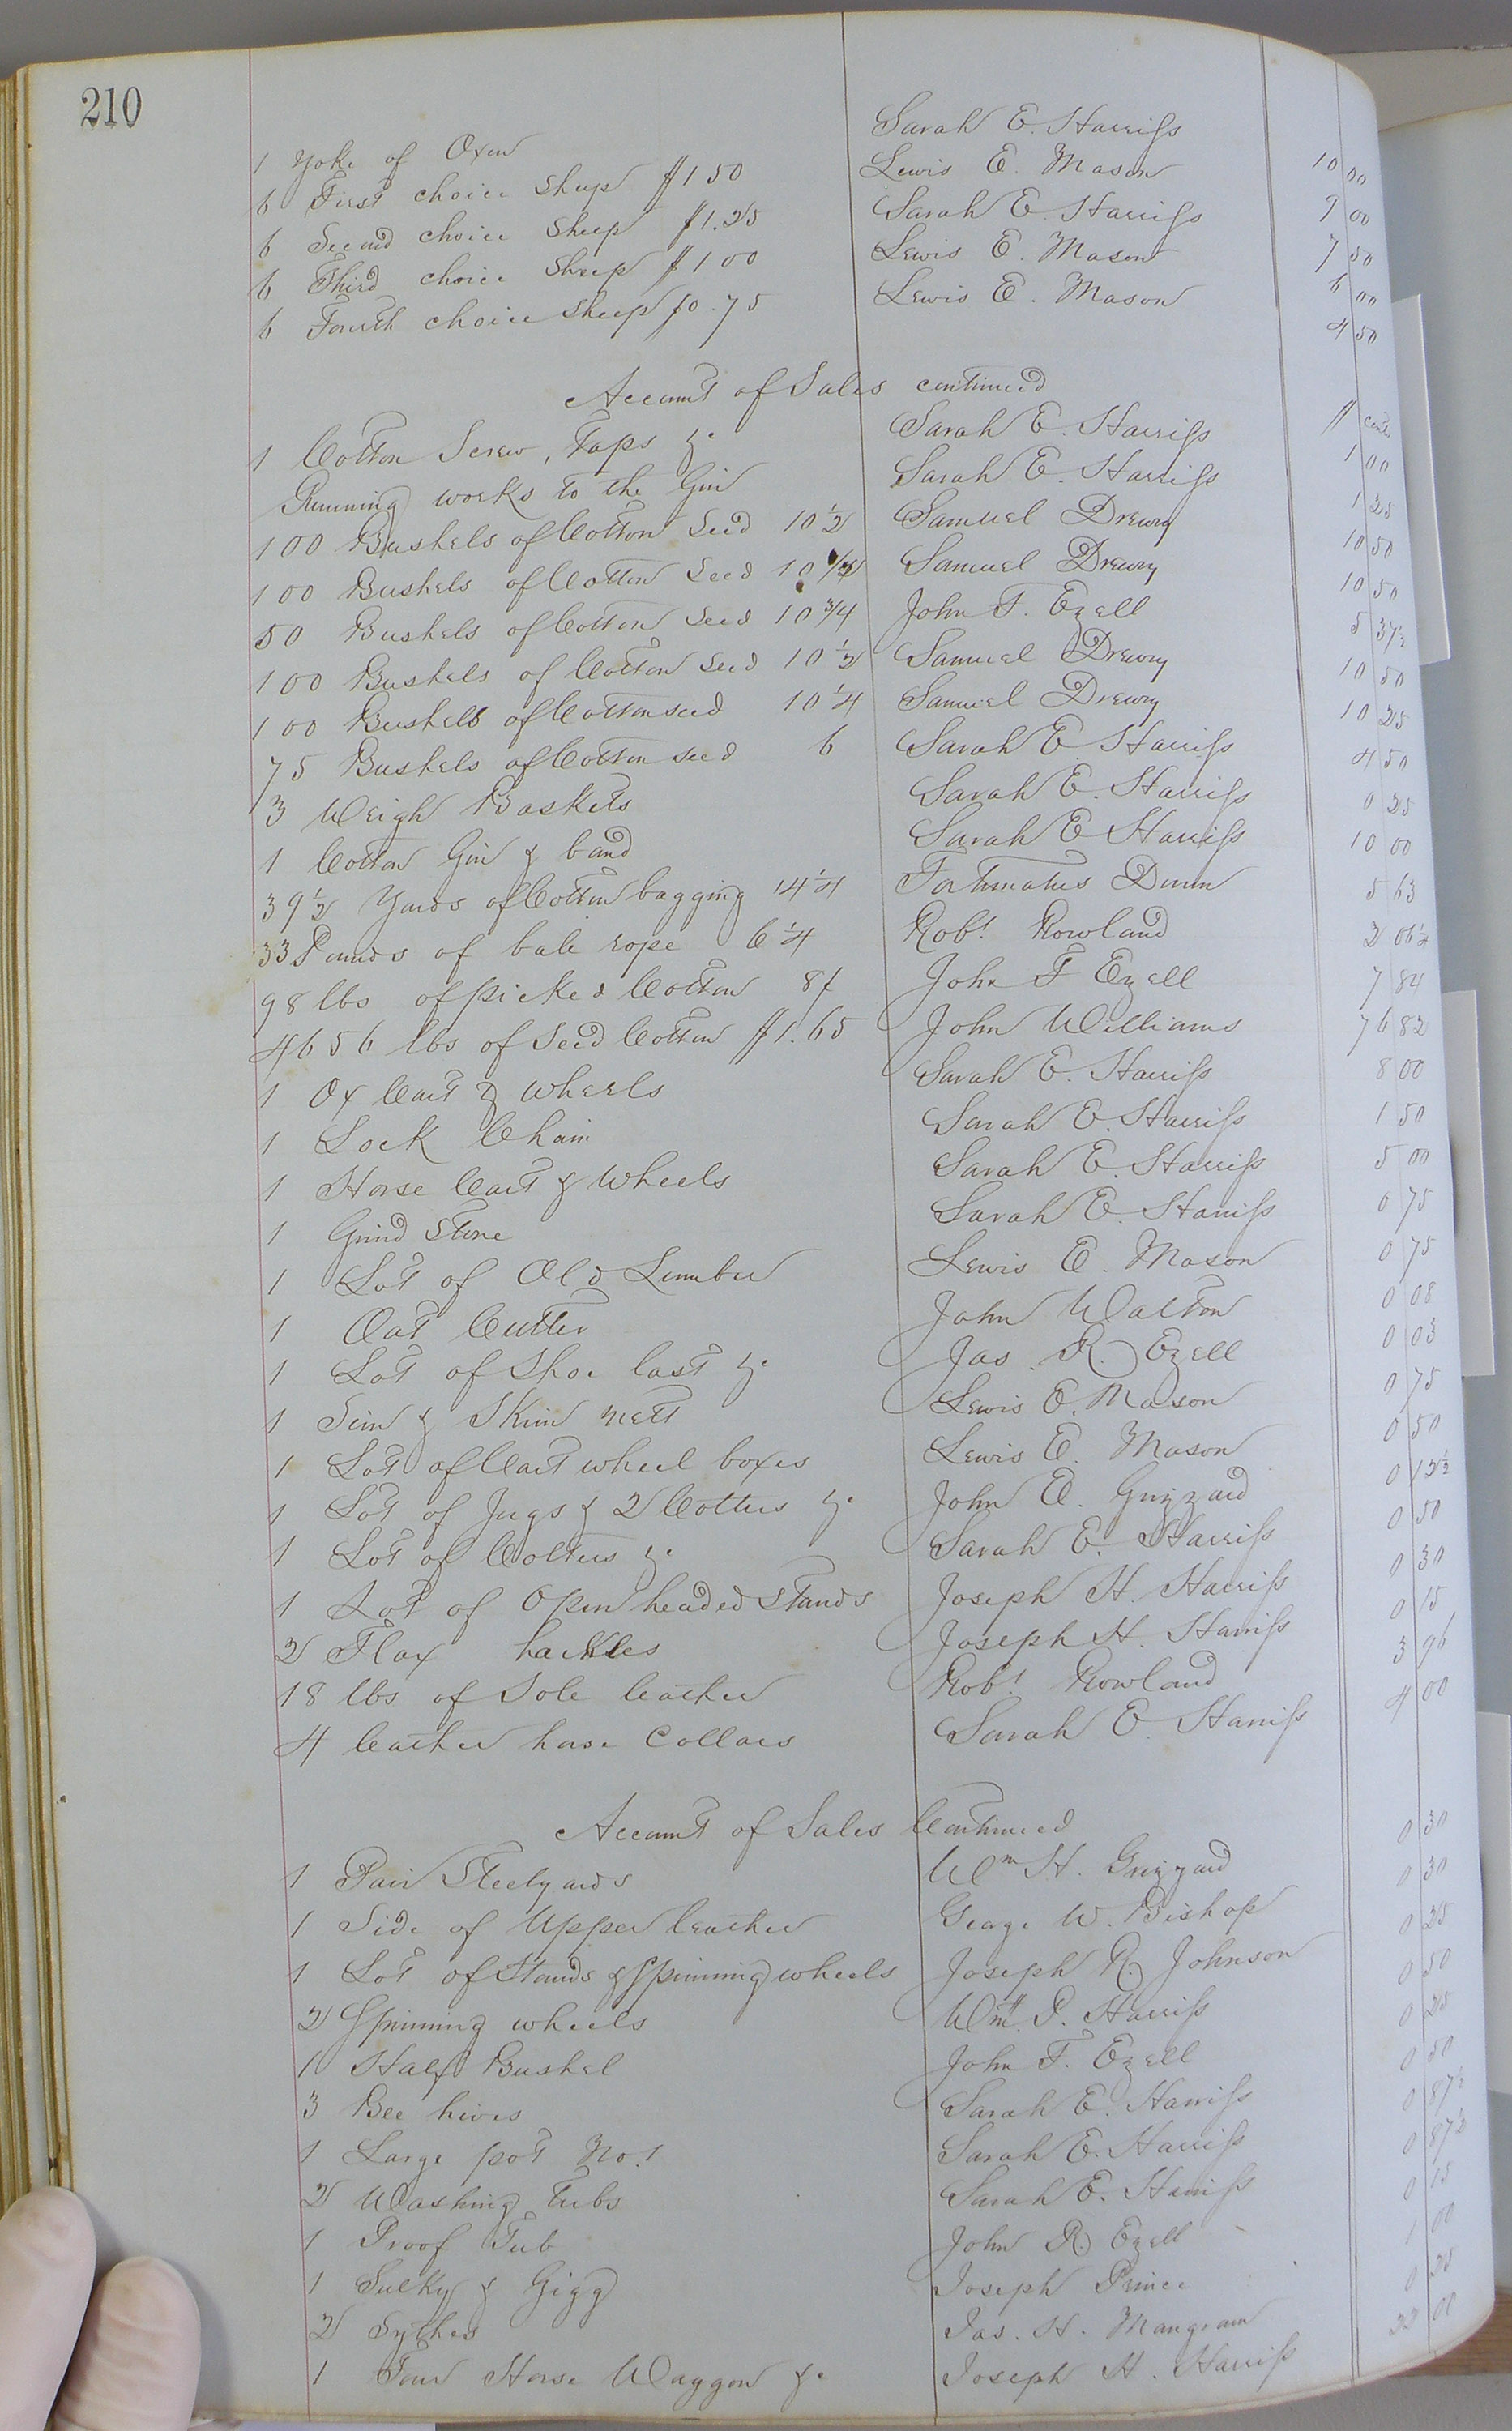 210
1 Yoke of Oxen Sarah E. Harriss 10 00
6 First choice Sheep $1 50 Lewis E. Mason 9 00
6 Second choice Sheep $1.25 Sarah E. Harriss 7 50
6 Third choice Sheep $1 00 Lewis E. Mason 6 00
6 Fourth choice Sheep $0.75 Lewis E. Mason 4 50
Account of Sales continued
$ cents
1 Cotton Screw, Taps &c Sarah E. Harriss 1 00
Running works to the Gin Sarah E. Harriss 1 25
100 Bushels of Cotton Seed 10 1/2 Samuel Drewry 10 50
100 Bushels of Cotton Seed 10 1/2 Samuel Drewry 10 50
50 Bushels of Cotton Seed 10 3/4 John F. Ezell 5 37 1/2
100 Bushels of Cotton Seed 10 1/2 Samuel Drewry 10 50
100 Bushels of Cotton seed 10 1/4 Samuel Drewry 10 25
75 Bushels of Cotton seed 6 Sarah E Harriss 4 50
3 Weigh Baskets Sarah E. Harriss 0 25
1 Cotton Gin & band Sarah E Harriss 10 00
39 1/2 Yards of Cotton bagging 14 1/4 Fortunatus Dunn 5 63
33 Pounds of bale rope 6 1/4 Robt. Rowland 2 06 1/4
98 lbs of picked Cotton 8¢ John F Ezell 7 84
4656 lbs of Seed Cotton $1.65 John Williams 76 82
1 Ox Cart & wheels Sarah E. Harriss 8 00
1 Lock Chain Sarah E. Harriss 1 50
1 Horse Cart & Wheels Sarah E. Harriss 5 00
1 Grind Stone Sarah E. Harriss 0 75
1 Lot of Old Lumber Lewis E. Mason 0 75
1 Oat Cutter John Walton 0 08
1 Lot of Shoe last &c Jas. R. Ezell 0 03
1 Sein & Skim nett Lewis E. Mason 0 75
1 Lot of Cart wheel boxes Lewis E. Mason 0 50
1 Lot of Jugs & 2 Cotters &c John E. Grizzard 0 12 1/2
1 Lot of Colters &c Sarah E. Harriss 0 50
1 Lot of Open headed Stands Joseph H. Harriss 0 30
2 Flax hackles Joseph H. Harriss 0 15
18 lbs of Sole leather Robt. Rowland 3 96
4 leather horse Collars Sarah E. Harriss 4 00
Account of Sales Continued
1 Pair Steelyards Wm H. Grizzard 0 30
1 Side of Upper leather George W. Bishop 0 30
1 Lot of Stands & Spinning wheels Joseph R. Johnson 0 25
2 Spinning wheels Wm P. Harriss 0 50
1 Half Bushel John F. Ezell 0 25
3 Bee hives Sarah E. Harriss 0 50
1 Large pot No. 1 Sarah E. Harriss 0 87 1/2
2 Washing Tubs Sarah E. Harriss 0 87 1/2
1 Proof Tub John R. Ezell 0 15
1 Sulky & Gigg Joseph Prince 1 00
2 Sythes Jas. H. Mangram 0 25
1 Four Horse Waggon &c Joseph H. Harriss 22 00